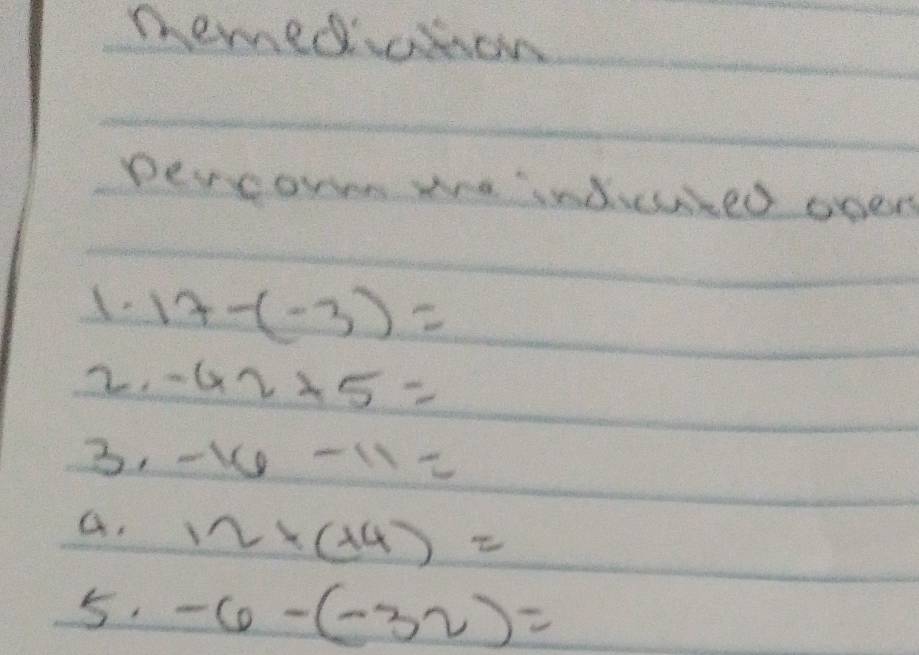 Remediation
perform the indicated oper
1. 17 - (-3) =
2. -42 + 5 =
3. -16 - 11 =
4. 12 + (+4) =
5. -6 - (-32) =